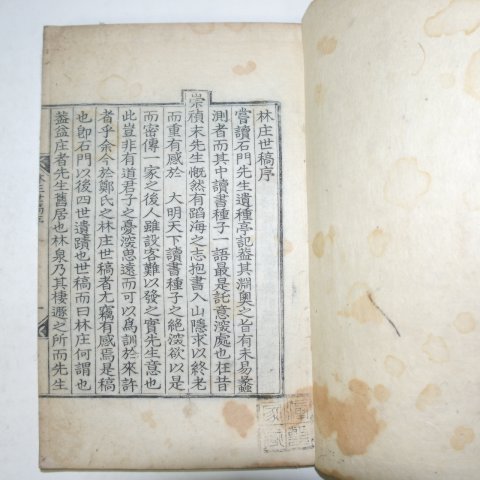 林庄世稿序
嘗讀石門先生遺種亭記蓋其淵奧之旨有未易蠡
測者而其中讀書種子一語最是託意深處也在昔
崇禎末先生慨然有蹈海之志抱書入山隱求以終老
而重有感於 大明天下讀書種子之絶深欲以是
而密傳一家之後人雖設客難以發之實先生意也
此豈非有道君子之憂深思遠而可以為訓於來許
者乎余今於鄭氏之林庄世稿者尤竊有感焉是稿
也卽石門以後四世遺蹟也世稿而曰林庄何謂也
盖盆庄者先生舊居也林泉乃其棲遯之所而先生